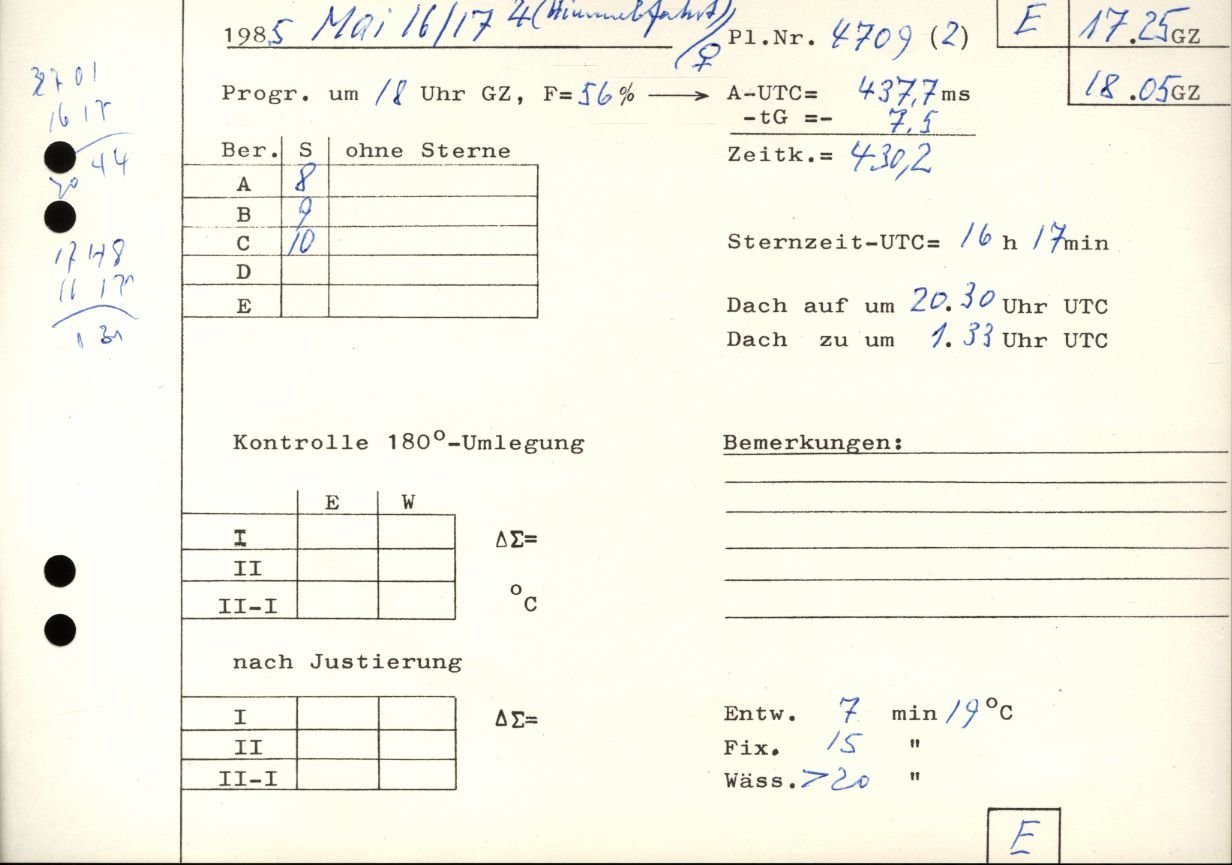 1985 Mai 16/17 4 (Himmelfahrt)/♀
Pl.Nr. 4709 (2)
E 17.25 GZ
18.05 GZ
Progr. um 18 Uhr GZ, F=56% → A-UTC= 437,7 ms
-tG =- 7,5
Zeitk.= 430,2
Ber. S ohne Sterne
A 8
B 9
C 10
D
E
16 17
44
17 48
16 17
1 31
Sternzeit-UTC= 16 h 17min
Dach auf um 20.30 Uhr UTC
Dach zu um 1.33 Uhr UTC
Kontrolle 180°-Umlegung
E W
I ΔΣ=
II
II-I °C
Bemerkungen:
nach Justierung
I ΔΣ=
II
II-I
Entw. 7 min 19°C
Fix. 15 "
Wäss. >20 "
E